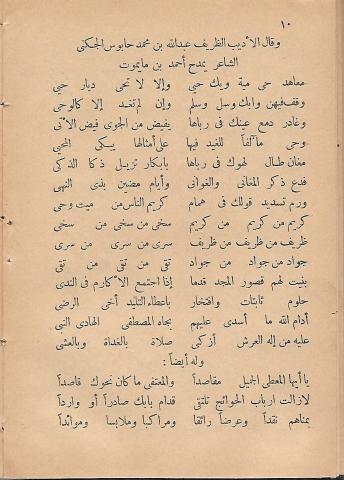 ١٠
وقال الأديب الظريف عبدالله بن محمد حابوس الجكنى
الشاعر يمدح أحمد بن مايموت
معاهد حى مية وبك حبى وإلا لا تحى ديار حبى
وقف فيهن وابك وسل وسلم وإن لم تفد إلا كالوحى
وغادر دمع عينك فى رباها يفيض من الجوى فيض الأتى
وحى مألفاً للغيد فيها على أمثالها يبكى المحبى
مغان طال لهوك فى رباها بابكار تزيل ذكا الذكى
فدع ذكر المغانى والغوانى وأيام مضين بذى النهى
ورم تسديد قولك فى همام كريم الناس من ميت وحى
كريم من كريم من كريم سخى من سخى من سخى
ظريف من ظريف من ظريف سرى من سرى من سرى
جواد من جواد من جواد تقى من تقى من تقى
بنيت لهم قصور المجد قدما إذا اجتمع الأكارم فى الندى
حلوم ثابتات وافتخار باعطاء التليد أخى الرضى
أدام الله ما أسدى عليهم بجاه المصطفى الهادى النبى
عليه من إله العرش أزكى صلاة بالغداة وبالعشى
وله أيضاً :
يا أيها المعطى الجميل مقاصداً والمعتفى ما كان نحوك قاصداً
لازالت ارباب الحوائج تلتقى قدام بابك صادراً أو وارداً
بمناهم نقداً وعرضاً رائقا ومراكبا وملابسا وموائداً